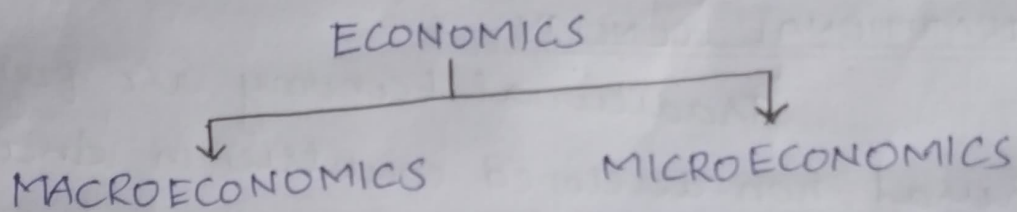 ECONOMICS
MACROECONOMICS
MICROECONOMICS